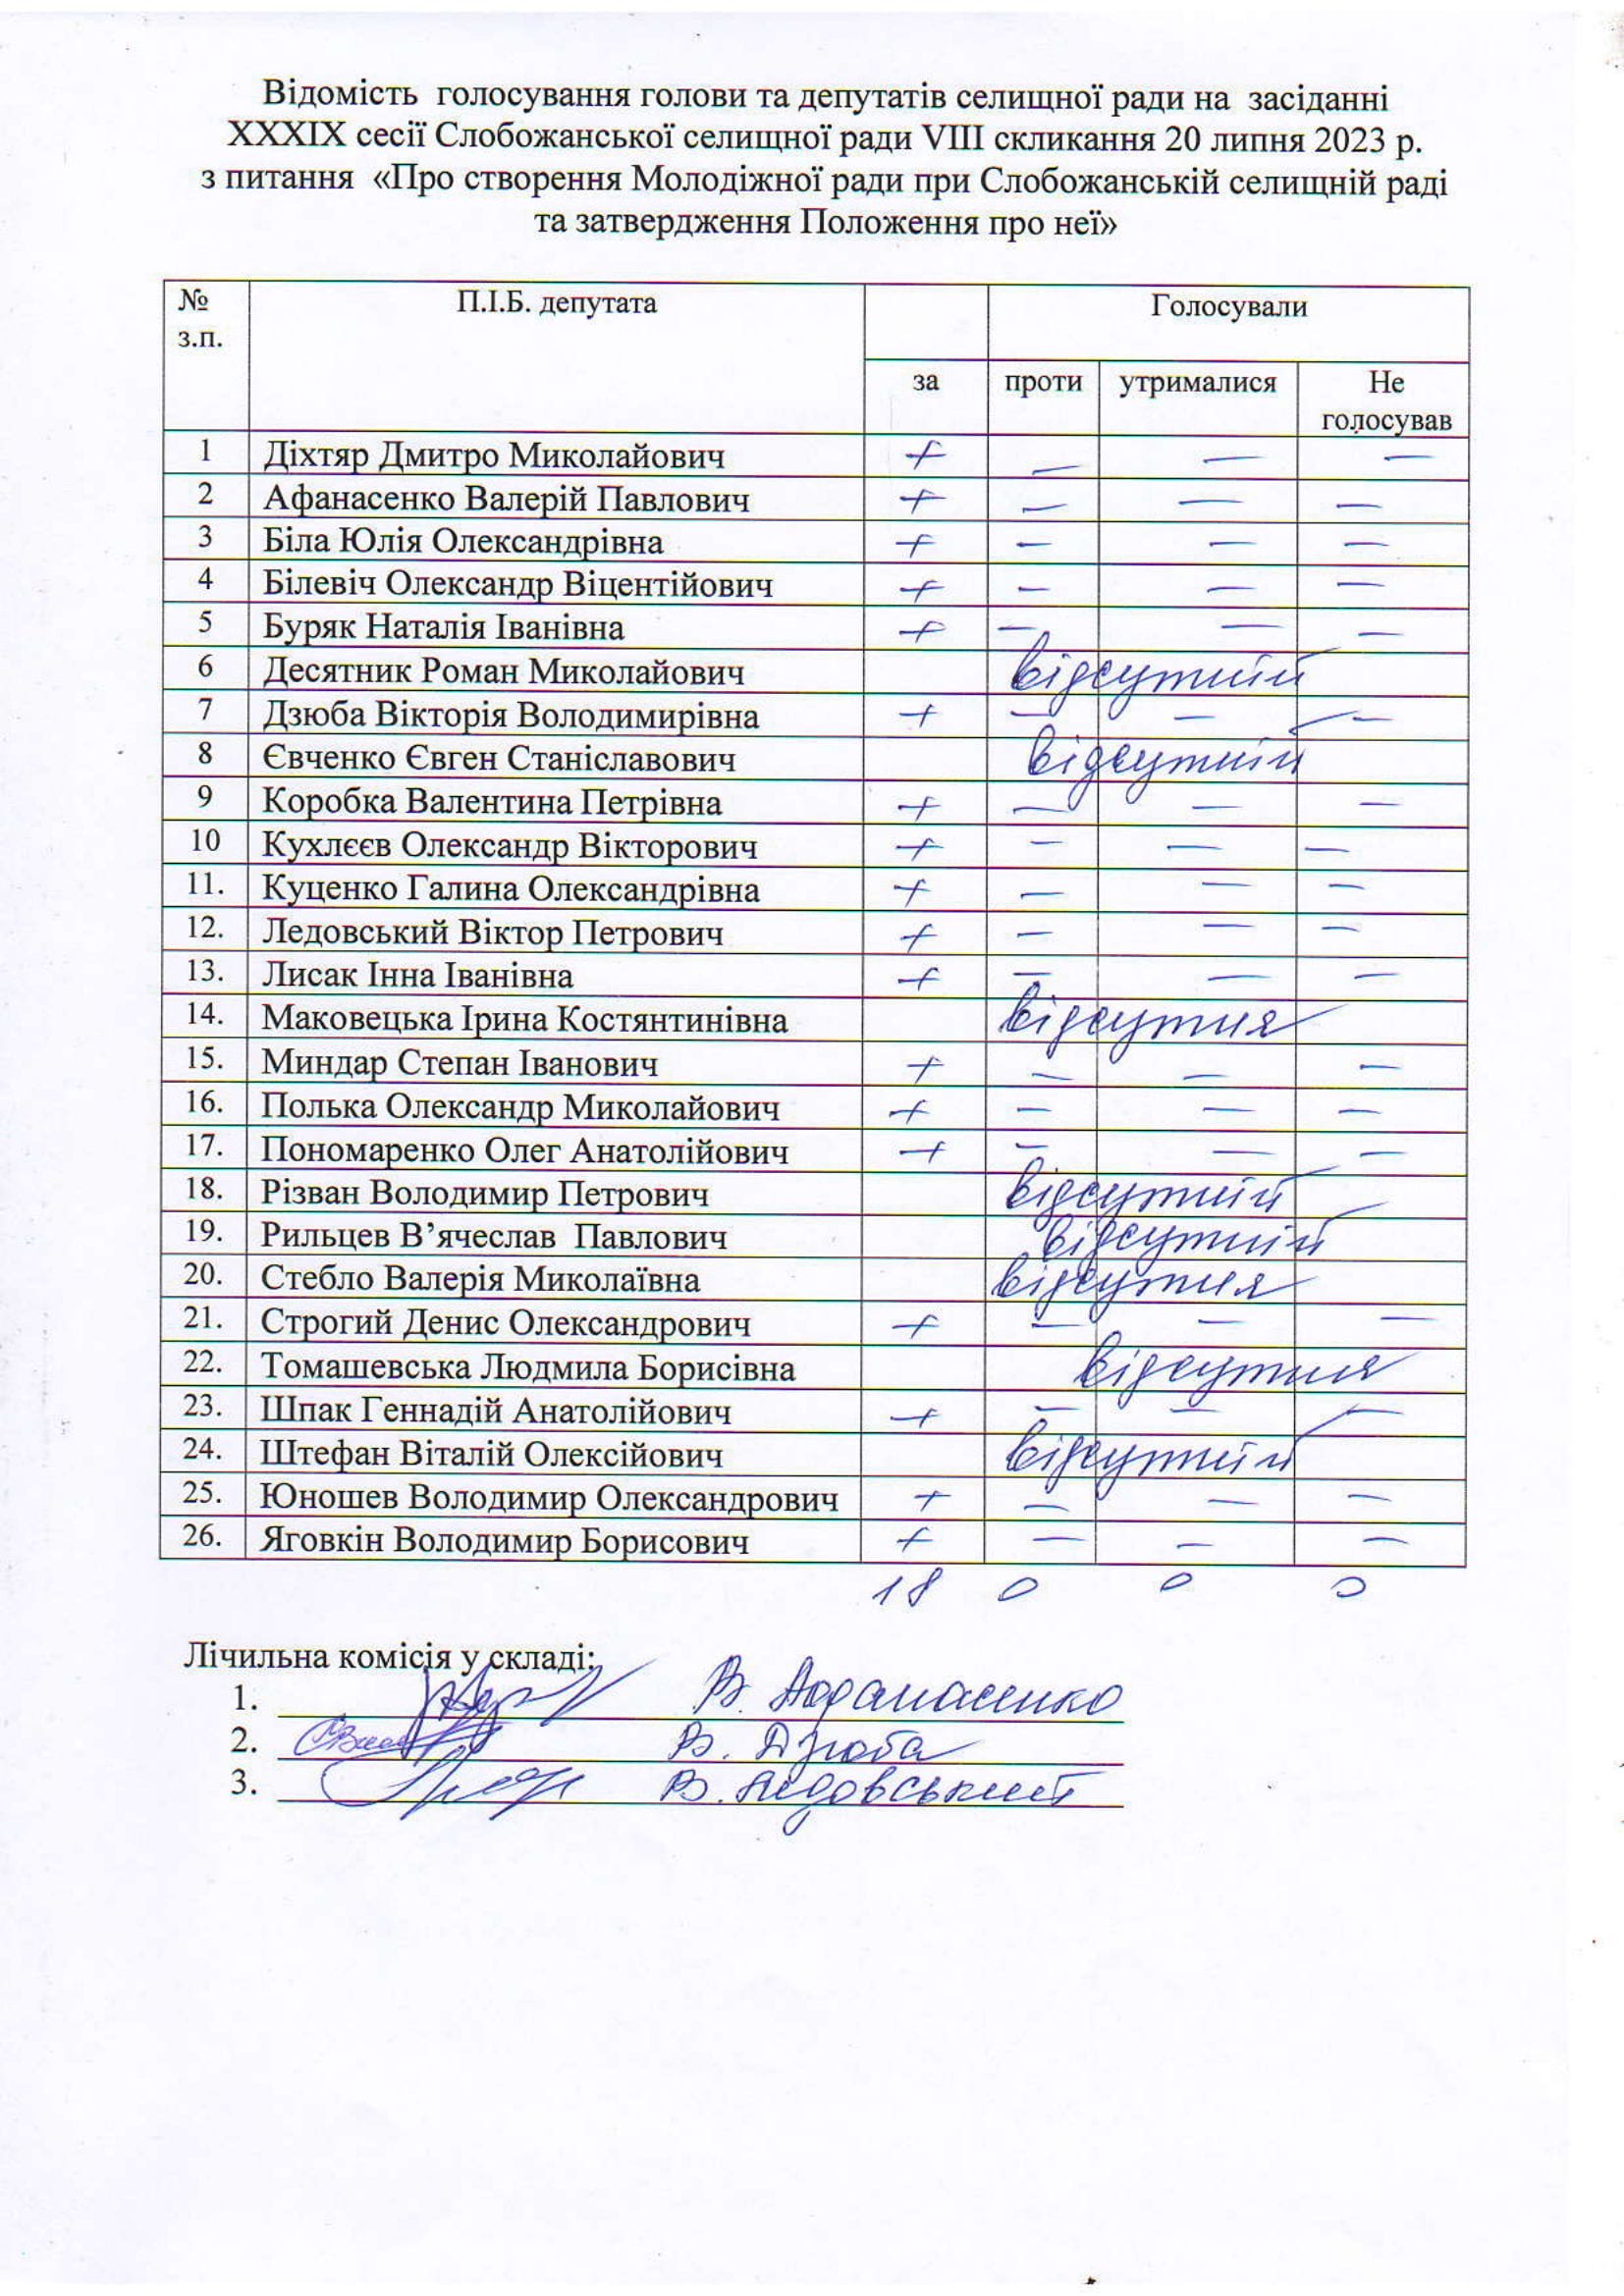 Відомість голосування голови та депутатів селищної ради на засіданні
XXXIX сесії Слобожанської селищної ради VIII скликання 20 липня 2023 р.
з питання «Про створення Молодіжної ради при Слобожанській селищній раді
та затвердження Положення про неї»
№ з.п. П.І.Б. депутата Голосували
за проти утрималися Не голосував
1 Діхтяр Дмитро Миколайович + — — —
2 Афанасенко Валерій Павлович + — — —
3 Біла Юлія Олександрівна + — — —
4 Білевіч Олександр Віцентійович + — — —
5 Буряк Наталія Іванівна + — — —
6 Десятник Роман Миколайович відсутній
7 Дзюба Вікторія Володимирівна + — — —
8 Євченко Євген Станіславович відсутній
9 Коробка Валентина Петрівна + — — —
10 Кухлєєв Олександр Вікторович + — — —
11. Куценко Галина Олександрівна + — — —
12. Ледовський Віктор Петрович + — — —
13. Лисак Інна Іванівна + — — —
14. Маковецька Ірина Костянтинівна відсутня
15. Миндар Степан Іванович + — — —
16. Полька Олександр Миколайович + — — —
17. Пономаренко Олег Анатолійович + — — —
18. Різван Володимир Петрович відсутній
19. Рильцев В’ячеслав Павлович відсутній
20. Стебло Валерія Миколаївна відсутня
21. Строгий Денис Олександрович + — — —
22. Томашевська Людмила Борисівна відсутня
23. Шпак Геннадій Анатолійович + — — —
24. Штефан Віталій Олексійович відсутній
25. Юношев Володимир Олександрович + — — —
26. Яговкін Володимир Борисович + — — —
18 0 0 0
Лічильна комісія у складі:
1. В. Афанасенко
2. В. Дзюба
3. В. Ледовський